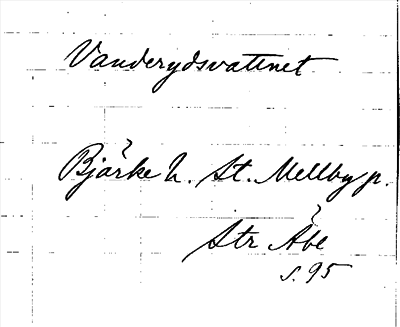 Vanderydsvattnet
Bjärke h. St. Mellby p.
Str Äbl
s. 95